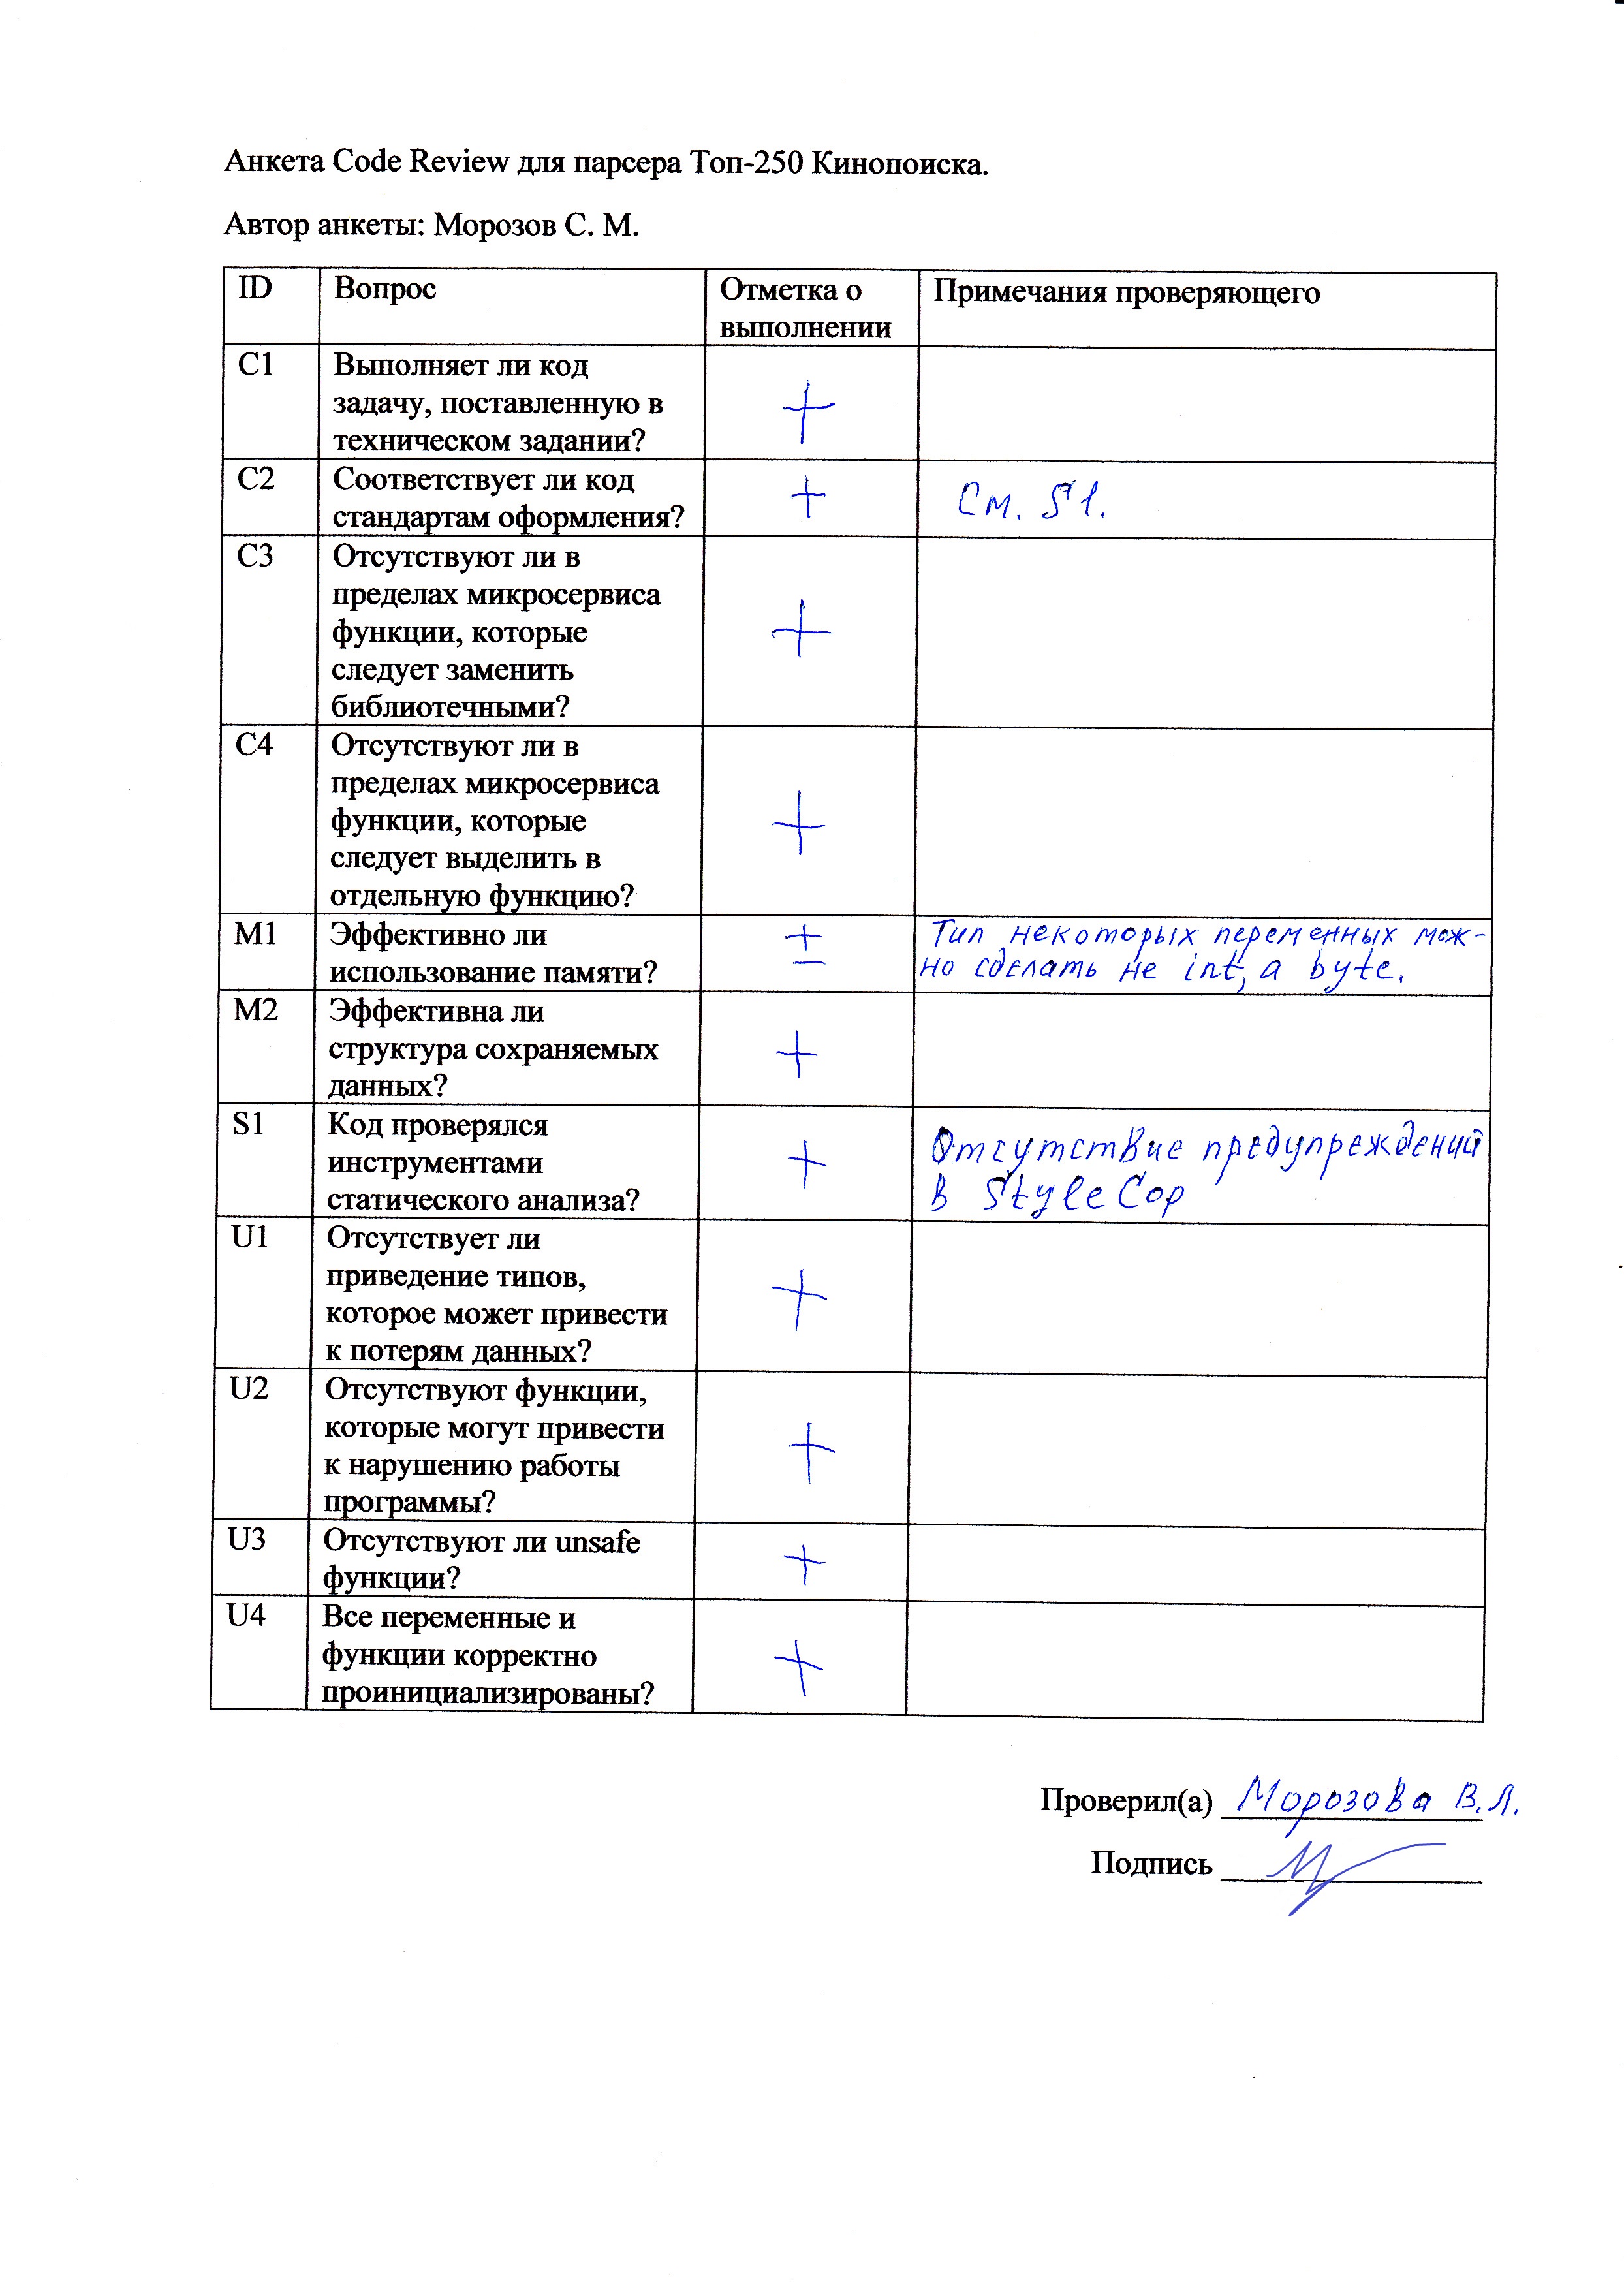 Анкета Code Review для парсера Топ-250 Кинопоиска.
Автор анкеты: Морозов С. М.
ID Вопрос Отметка о Примечания проверяющего
выполнении
C1 Выполняет ли код
задачу, поставленную в +
техническом задании?
C2 Соответствует ли код + См. S1.
стандартам оформления?
C3 Отсутствуют ли в
пределах микросервиса
функции, которые +
следует заменить
библиотечными?
C4 Отсутствуют ли в
пределах микросервиса
функции, которые +
следует выделить в
отдельную функцию?
M1 Эффективно ли ± Тип некоторых переменных мож-
использование памяти? но сделать не int, а byte.
M2 Эффективна ли
структура сохраняемых +
данных?
S1 Код проверялся Отсутствие предупреждений
инструментами +
статического анализа? в StyleCop
U1 Отсутствует ли
приведение типов, +
которое может привести
к потерям данных?
U2 Отсутствуют функции,
которые могут привести +
к нарушению работы
программы?
U3 Отсутствуют ли unsafe +
функции?
U4 Все переменные и
функции корректно +
проинициализированы?
Проверил(а) Морозова В.Л.
Подпись